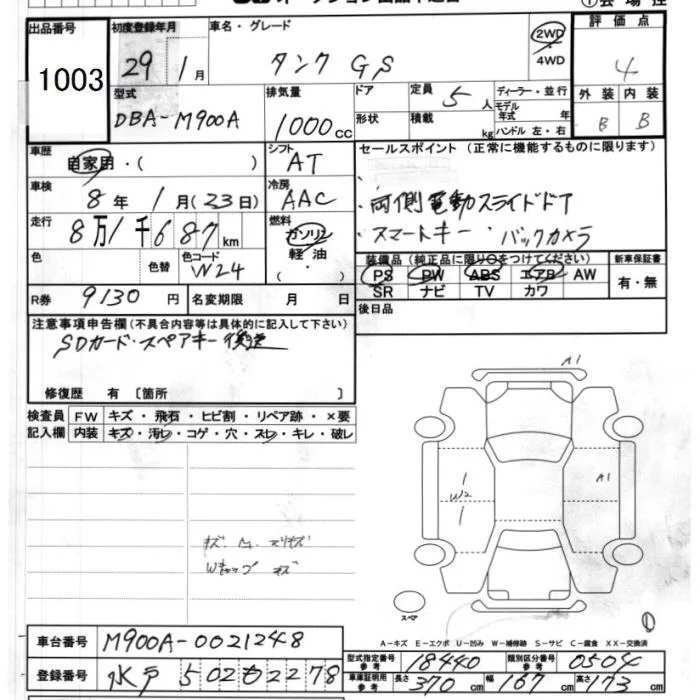 出品番号 初度登録年月 車名・グレード 評価点
1003 29年1月 タンク GS 2WD・4WD 4
型式 排気量 ドア 定員 5人 ディーラー・並行 外装 内装
DBA-M900A 1000cc 形状 積載 kg モデル年式 年 ハンドル 左・右 B B
車歴 自家用・( ) シフト AT セールスポイント (正常に機能するものに限ります)
車検 8年1月(23日) 冷房 AAC ・両側電動スライドドア
走行 8万1千687km 燃料 ガソリン 軽油 ・( ) ・スマートキー ・バックカメラ
色 色替 色コード W24 装備品 (純正品に限り○をつけてください) 新車保証書
PS PW ABS エアB AW 有・無
SR ナビ TV カワ
R券 9130円 名変期限 月 日 後日品
注意事項申告欄 (不具合内容等は具体的に記入して下さい)
SDカード・スペアキー 後送
修復歴 有 〔箇所 〕
検査員記入欄 FW キズ・飛石・ヒビ割・リペア跡・×要
内装 キズ・汚レ・コゲ・穴・スレ・キレ・破レ
A1
W2
A1
Wキャップ キズ
スペア
A-キズ E-エクボ U-凹み W-補修跡 S-サビ C-腐食 XX-交換済
車台番号 M900A-0021248
型式指定番号 参考 18440 類別区分番号 参考 0504
登録番号 水戸 502 も 2278
車庫証明用 参考 長さ 370cm 幅 167cm 高さ 173cm